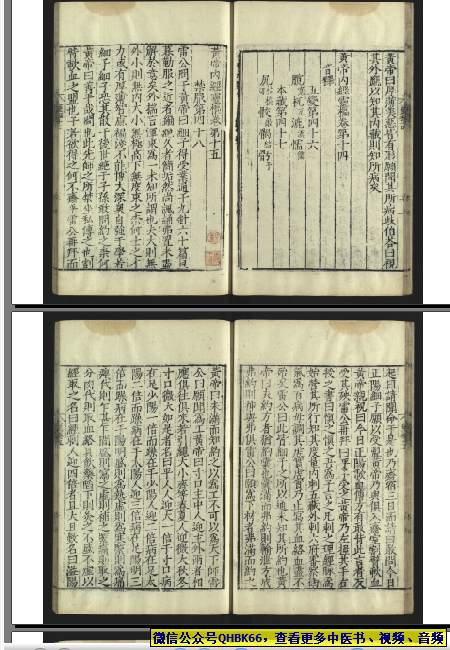 黄帝曰厚薄美惡皆有形願聞其所病岐伯荅曰視
其外應以知其内藏則知所病矣
黄帝内經靈樞卷第十四
音釋
五變第四十六
本藏第四十七
黄帝内經靈樞卷第十五
禁服第四十八
雷公問於黄帝曰細子得受業通于九針六十篇旦
暮勤服之近者編絶久者簡垢然尚諷誦弗置未盡
解於意矣外揣言渾束爲一未知所謂也夫大則無
外小則無内大小無極高下無度束之柰何士之才
力或有厚薄智慮褊淺不能博大深奥自強于學若
細子細子恐其散于後世絶于子孫敢問約之柰何
黄帝曰善乎哉問也此先師之所禁坐私傳之也割
臂歃血之盟也子若欲得之何不齋乎雷公再拜而
起曰請聞命於是也乃齋宿三日而請曰敢問今日
正陽細子願以受盟黄帝乃與俱入齋室割臂歃血
黄帝親祝曰今日正陽歃血傳方有敢背此言者反
受其殃雷公再拜曰細子受之黄帝乃左握其手右
授之書曰愼之愼之吾爲子言之凡刺之理經脉爲
始營其所行知其度量内刺五藏外刺六府審察衛
氣爲百病母調其虚實虚實乃止瀉其血絡血盡不
殆矣雷公曰此皆細子之所以通未知其所約也黄
帝曰夫約方者猶約囊也囊滿而弗約則輸泄方成
弗約則神與弗俱雷公曰願爲下材者弗滿而約之
黄帝曰未滿而知約之以爲工不可以爲天下師雷
公曰願聞爲工黄帝曰寸口主中人迎主外兩者相
應俱往俱來若引繩大小齊等春夏人迎微大秋冬
寸口微大如是者名曰平人人迎大一倍于寸口病
在足少陽一倍而躁病在手少陽人迎二倍病在足太
陽二倍而躁病在手太陽人迎三倍病在足陽明三
倍而躁病在手陽明盛則爲熱虚則爲寒緊則爲痛
痺代則乍甚乍間盛則瀉之虚則補之緊痛則取之
分肉代則取血絡且飲藥陷下則灸之不盛不虚以
經取之名曰經刺人迎四倍者且大且數名曰溢陽
微信公众号QHBK66，查看更多中医书、视频、音频